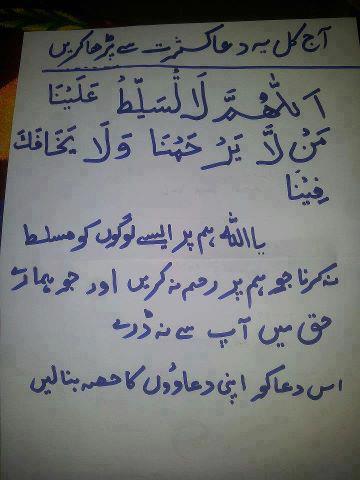 آج کل یہ دعا کثرت سے پڑھا کریں
اَللّٰهُمَّ لَا تُسَلِّطْ عَلَيْنَا
مَنْ لَّا يَرْحَمُنَا وَلَا يَخَافَكَ
فِيْنَا
یا اللّٰہ ہم پر ایسے لوگوں کو مسلط
نہ کرنا جو ہم پر رحم نہ کریں اور جو ہمارے
حق میں آپ سے نہ ڈرے
اس دعا کو اپنی دعاوٗوں کا حصہ بنا لیں